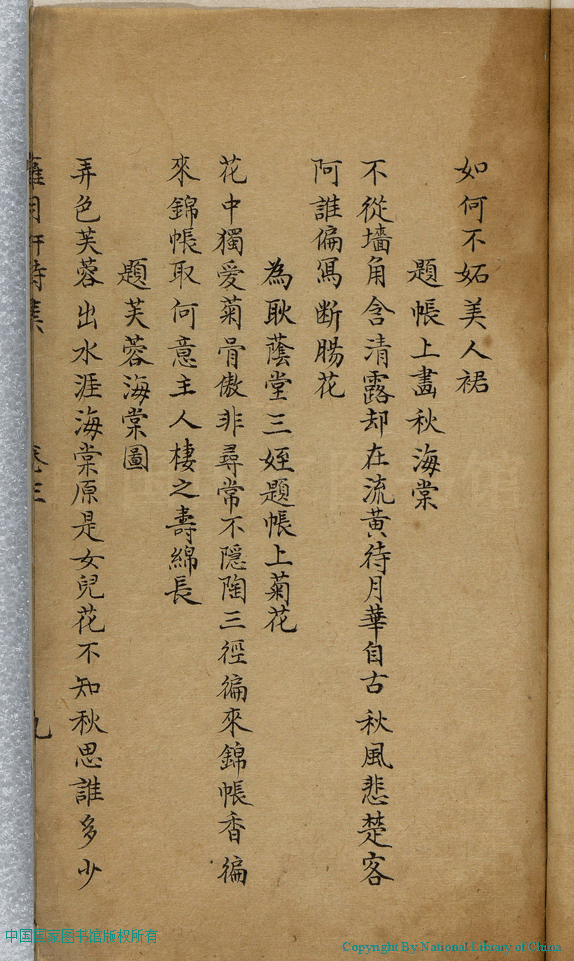 如何不妬美人裙
題帳上畫秋海棠
不從墻角含清露却在流黃待月華自古秋風悲楚客
阿誰偏寫断腸花
為耿蔭堂三姪題帳上菊花
花中獨爱菊骨傲非尋常不隠陶三徑徧來錦帳香徧
來錦帳取何意主人棲之壽綿長
題芙蓉海棠圖
弄色芙蓉出水涯海棠原是女兒花不知秋思誰多少
卷三
九
中国国家图书馆版权所有
Copyright By National Library of China